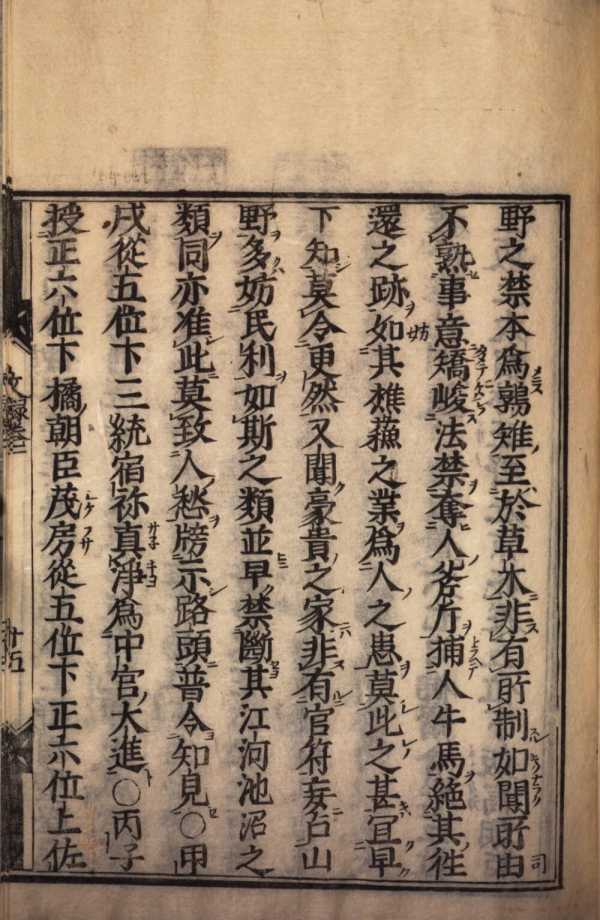 野之禁本爲鶉雉至於草木非有所制如聞所由司
不熟事意矯峻法禁奪人斧斤捕人牛馬絶其徃
還之跡如其樵蘓之業爲人之患莫此之甚宜早
下知莫令更然又聞豪貴之家非有官符妄占山
野多妨民利如斯之類並早禁斷其江河池沼之
類同亦准此莫致人愁牓示路頭普令知見○甲
戌從五位下三統宿祢真淨爲中宮大進○丙子
授正六位下橘朝臣茂房從五位下正六位上佐